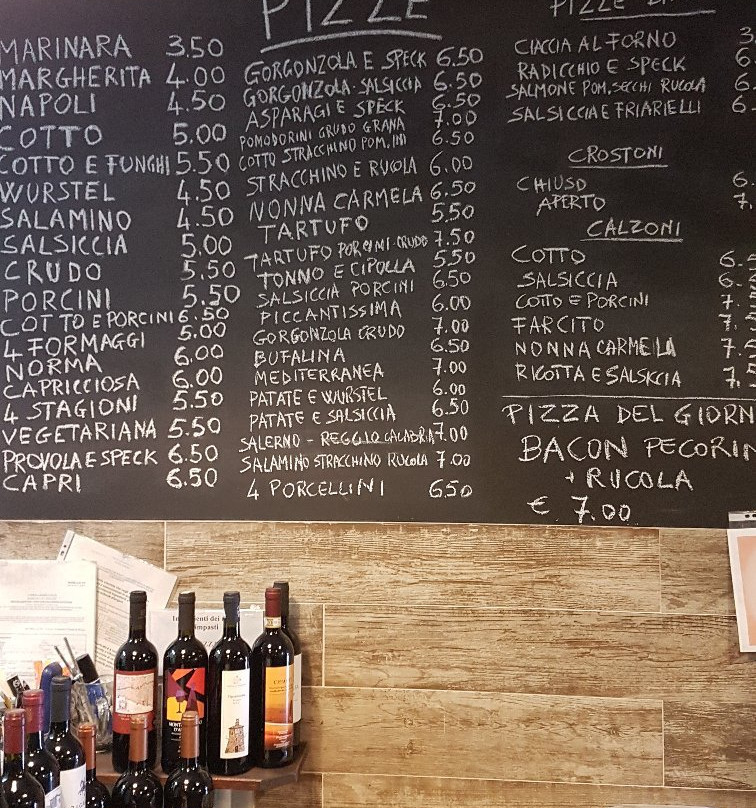 PIZZE
MARINARA 3.50
MARGHERITA 4.00
NAPOLI 4.50
COTTO 5.00
COTTO E FUNGHI 5.50
WURSTEL 4.50
SALAMINO 4.50
SALSICCIA 5.00
CRUDO 5.50
PORCINI 5.50
COTTO E PORCINI 6.50
4 FORMAGGI 5.00
NORMA 6.00
CAPRICCIOSA 6.00
4 STAGIONI 5.50
VEGETARIANA 5.50
PROVOLA E SPECK 6.50
CAPRI 6.50
GORGONZOLA E SPECK 6.50
GORGONZOLA - SALSICCIA 6.50
ASPARAGI E SPECK 6.50
POMODORINI CRUDO GRANA 7.00
COTTO STRACCHINO POM.INI 6.50
STRACCHINO E RUCOLA 6.00
NONNA CARMELA 6.50
TARTUFO 5.50
TARTUFO PORCINI-CRUDO 7.50
TONNO E CIPOLLA 5.50
SALSICCIA PORCINI 6.50
PICCANTISSIMA 6.00
GORGONZOLA CRUDO 7.00
BUFALINA 6.50
MEDITERRANEA 7.00
PATATE E WURSTEL 6.00
PATATE E SALSICCIA 6.50
SALERNO - REGGIO CALABRIA 7.00
SALAMINO STRACCHINO RUCOLA 7.00
4 PORCELLINI 6.50
PIZZE
CIACCIA AL FORNO 3
RADICCHIO E SPECK 6.
SALMONE POM. SECCHI RUCOLA 6
SALSICCIA E FRIARIELLI 6
CROSTONI
CHIUSO 6.
APERTO 7.
CALZONI
COTTO 6.5
SALSICCIA 6.
COTTO E PORCINI 7.
FARCITO 7.
NONNA CARMELA 7.5
RICOTTA E SALSICCIA 7.5
PIZZA DEL GIORN
BACON PECORIN
+ RUCOLA
€ 7.00